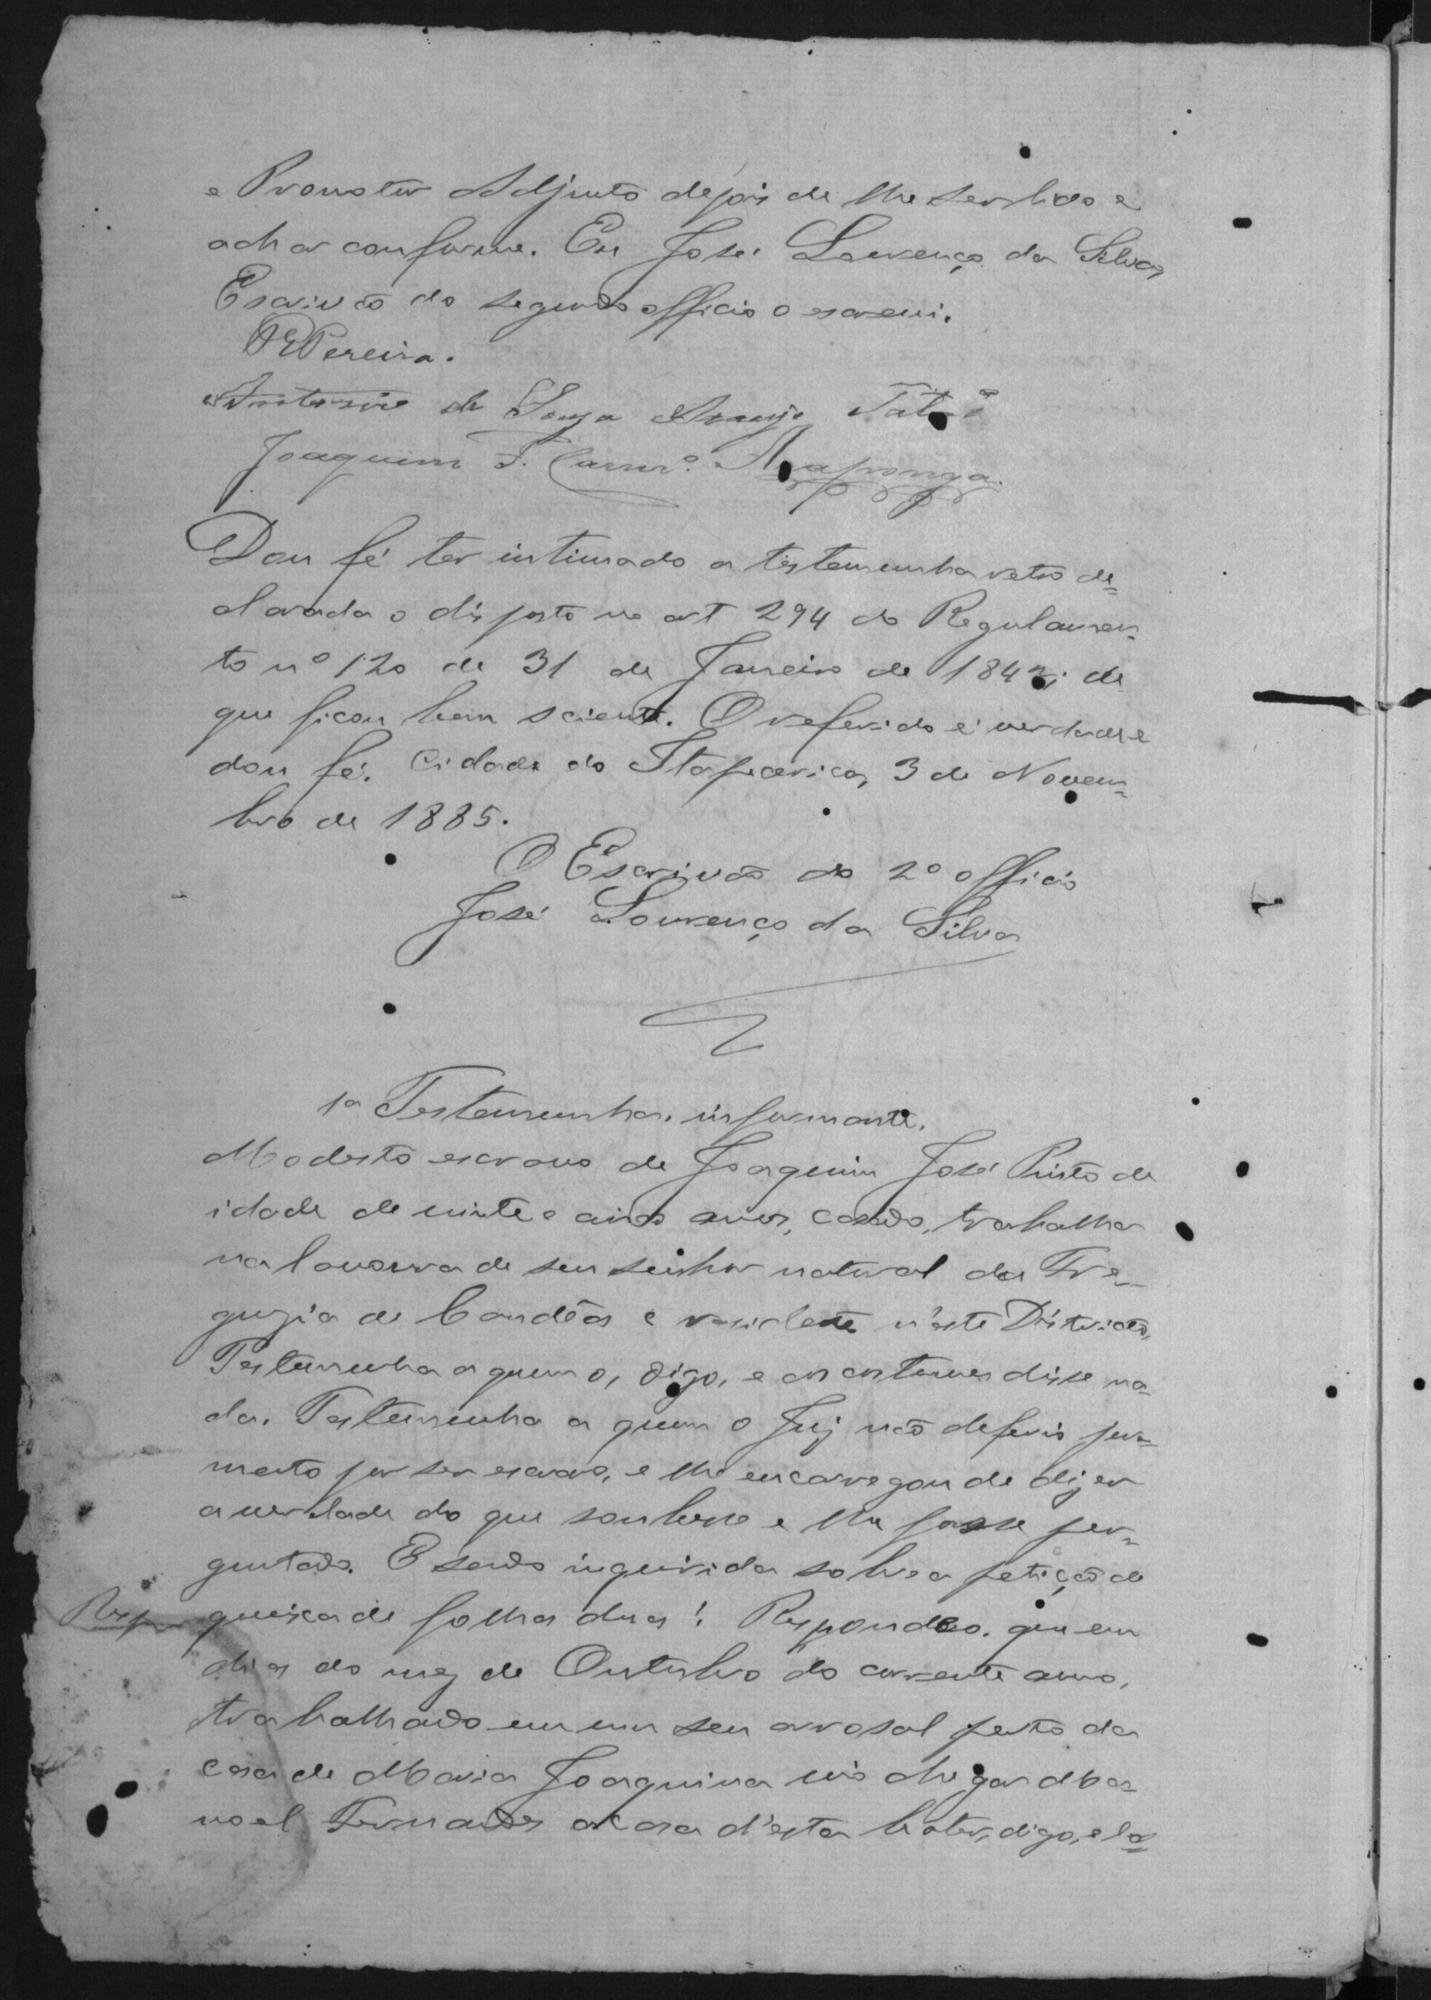 e Promotor Adjunto depois de lhe ser lido e
achar conforme. Eu José Lourenço da Silva,
Escrivão do segundo officio o escrevi.
Pereira.
Antonio de Souza Araujo
Joaquim F. Carnrº. Araponga.
Dou fé ter intimado a testemunha retro de=
clarada o disposto no art 294 do Regulamen=
to nº 120 de 31 de Janeiro de 1842; de
que ficou bem sciente. O referido é verdade e
dou fé. Cidade do Itapecerica, 3 de Novem=
bro de 1885.
O Escrivão do 2º officio
José Lourenço da Silva
1ª Testemunha. informante.
Modesto escravo de Joaquim José Pinto de
idade de vinte e cinco annos, casado, trabalha
na lavoura de seu senhor natural da Fre=
guzia de Candêas e residente n'este Districto,
Testemunha a quem o, digo, e aos costumes disse na=
da. Testemunha a quem o Juiz não deferio jura=
mento por ser escravo, e lhe encarregou de dizer
a verdade do que soubesse e lhe fosse per=
guntado. E sendo inquirida sobre a petição de
Resp queixa de folhas duas! Respondeo. que em
dias do mez de Outubro do corrente anno,
trabalhado em um seu arrosal perto da
casa de Maria Joaquina vio chegar Ma=
noel Fernandes a casa d'esta bater, digo, e la=